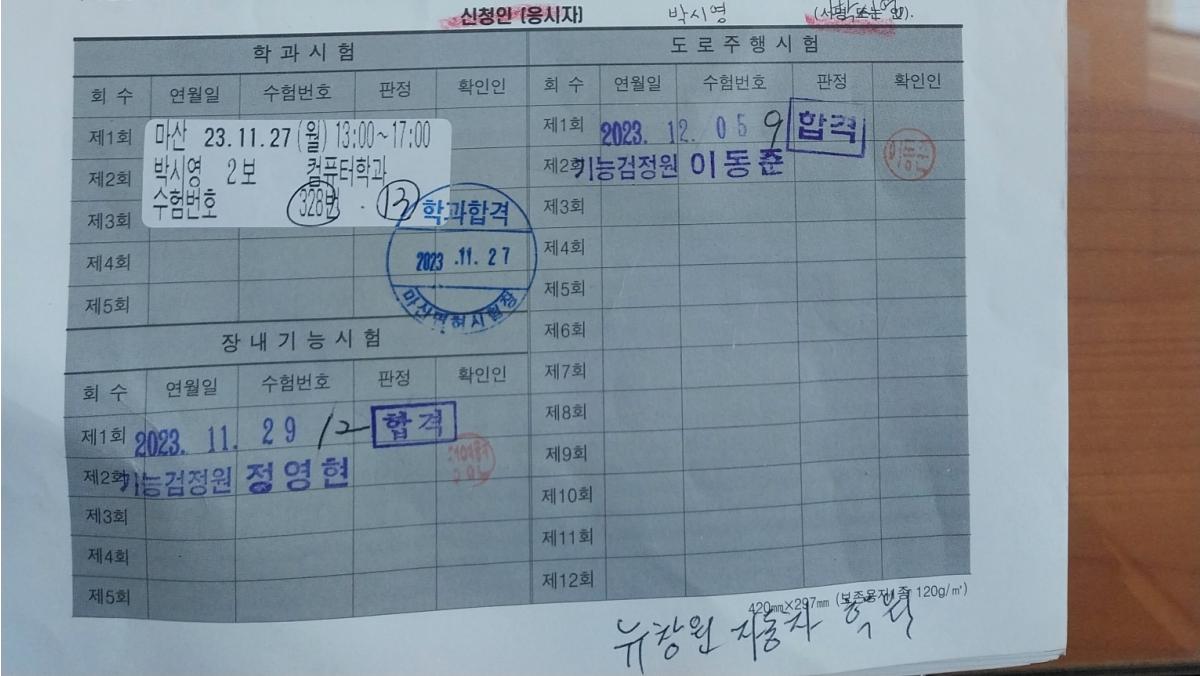 신청인 (응시자) 박시영 (서명 또는 인).
학 과 시 험
회 수 연월일 수험번호 판정 확인인
제1회 마산 23.11.27 (월) 13:00~17:00
제2회 박시영 2보 컴퓨터학과
수험번호 328번 . 13
제3회
학과합격
2023 .11. 27
마산면허시험장
제4회
제5회
장 내 기 능 시 험
회 수 연월일 수험번호 판정 확인인
제1회 2023. 11. 29 12 합격
제2회 기능검정원 정영현
제3회
제4회
제5회
도 로 주 행 시 험
회 수 연월일 수험번호 판정 확인인
제1회 2023. 12. 05 9 합격
제2회 기능검정원 이동준
이동준
제3회
제4회
제5회
제6회
제7회
제8회
제9회
제10회
제11회
제12회
420㎜×297㎜ (보존용지1종 120g/㎡)
뉴창원 자동차 학원